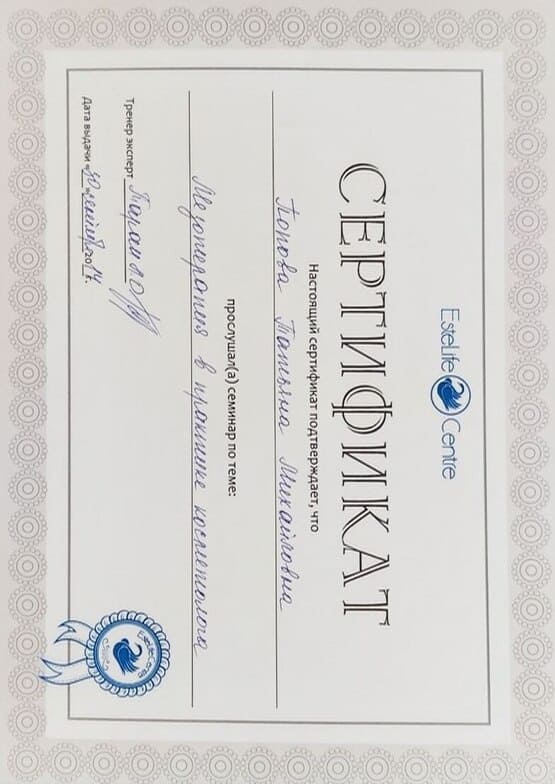 EsteLife Centre
СЕРТИФИКАТ
Настоящий сертификат подтверждает, что
Попова Татьяна Михайловна
прослушал(а) семинар по теме:
Мезотерапия в практике косметолога
Тренер эксперт Таран
Дата выдачи «30» сентября 2017г.
EsteLifeCentre